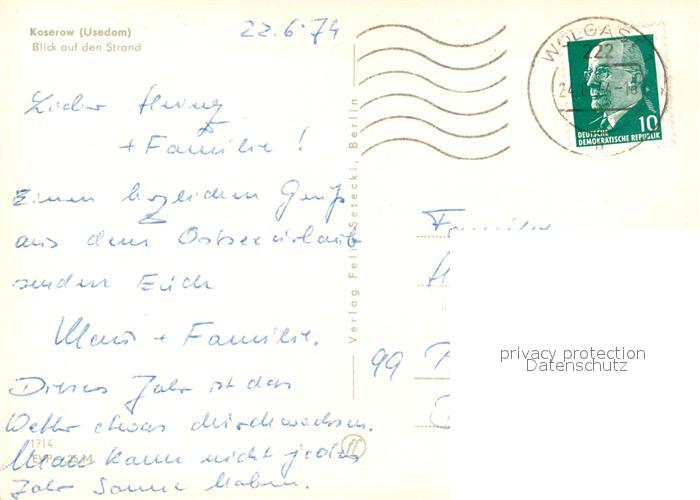 Koserow (Usedom)
Blick auf den Strand
22.6.74
WOLGAST
222
10
DEUTSCHE
DEMOKRATISCHE REPUBLIK
Lieber
+ Familie!
Einen herzlichen Gruß
aus dem Ostseeurlaub
senden Euch
+ Familie.
Dieses Jahr ist das
Wetter etwas durchwachsen.
Man kann nicht jedes
Jahr Sonne haben.
Verlag Felix Setecki, Berlin
Familie
99
1714
privacy protection
Datenschutz